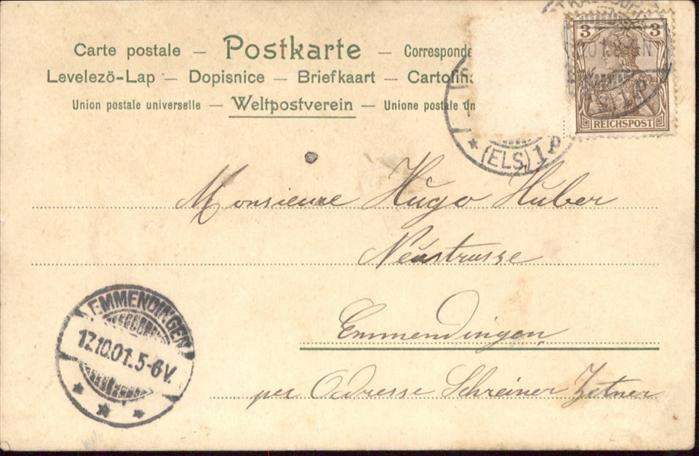 Carte postale — Postkarte — Corresponde
Levelezö-Lap — Dopisnice — Briefkaart — Cartolina
Union postale universelle — Weltpostverein — Unione postale un
3 3
REICHSPOST
(ELS.) 1 P
Monsieure Hugo Huber
Neustrasse
Emmendingen
per Adresse Schreiner Zetner
EMMENDINGEN
17.10.01.5-6V.